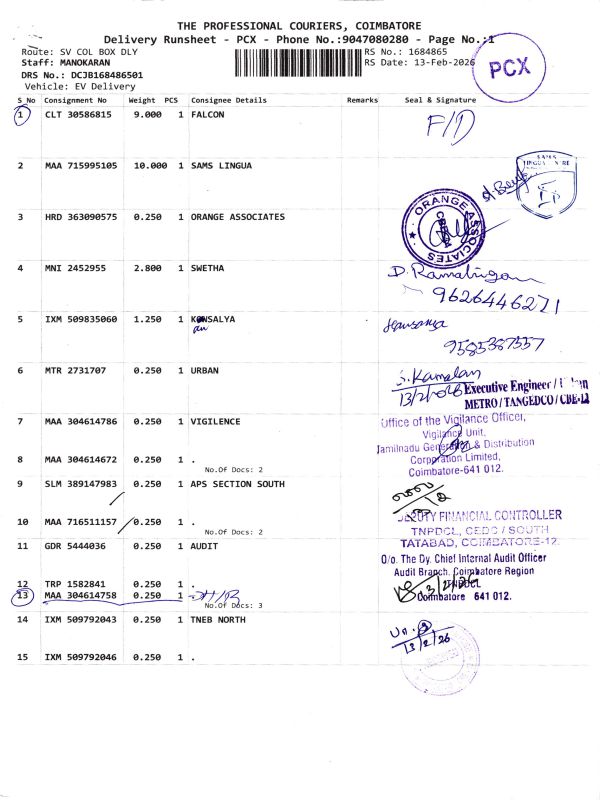 THE PROFESSIONAL COURIERS, COIMBATORE
Delivery Runsheet - PCX - Phone No.:9047080280 - Page No.:1
Route: SV COL BOX DLY
RS No.: 1684865
Staff: MANOKARAN
RS Date: 13-Feb-2026
DRS No.: DCJB168486501
Vehicle: EV Delivery
PCX
S_No Consignment No Weight PCS Consignee Details Remarks Seal & Signature
1 CLT 30586815 9.000 1 FALCON F/D
2 MAA 715995105 10.000 1 SAMS LINGUA
SAMS
3 HRD 363090575 0.250 1 ORANGE ASSOCIATES
ORANGE ASSOCIATES
4 MNI 2452955 2.800 1 SWETHA
9626446271
5 IXM 509835060 1.250 1 KOWSALYA
au
6 MTR 2731707 0.250 1 URBAN
13/2/2026
Executive Engineer /
METRO / TANGEDCO / CBE-12
7 MAA 304614786 0.250 1 VIGILENCE
Office of the Vigilance Officer,
Vigilance Unit,
Tamilnadu Generation & Distribution
Corporation Limited,
Coimbatore-641 012.
8 MAA 304614672 0.250 1 .
No.Of Docs: 2
9 SLM 389147983 0.250 1 APS SECTION SOUTH
10 MAA 716511157 0.250 1 .
No.Of Docs: 2
DEPUTY FINANCIAL CONTROLLER
TNPDCL, CEDC / SOUTH
TATABAD, COIMBATORE-12.
11 GDR 5444036 0.250 1 AUDIT
O/o. The Dy. Chief Internal Audit Officer
Audit Branch, Coimbatore Region
TNPDCL
Coimbatore 641 012.
12 TRP 1582841 0.250 1 .
13 MAA 304614758 0.250 1 .
No.Of Docs: 3
14 IXM 509792043 0.250 1 TNEB NORTH
13/2/26
15 IXM 509792046 0.250 1 .